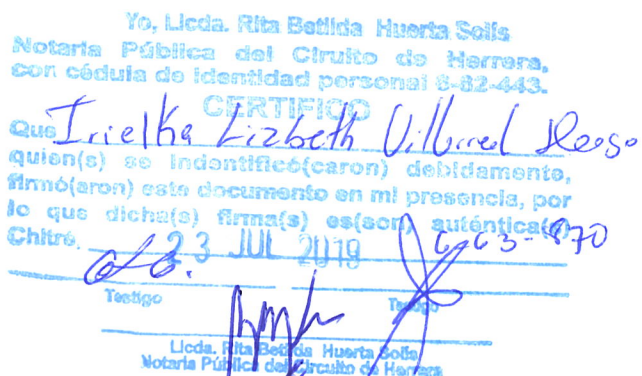 Yo, Licda. Rita Betilda Huerta Solís
Notaria Pública del Ciruito de Herrera,
con cédula de identidad personal 6-82-443.
CERTIFICO
Que Irielka Lizbeth Villarreal
quien(s) se indentificó(caron) debidamente,
firmó(aron) este documento en mi presencia, por
lo que dicha(s) firma(s) es(son) auténtica(s)
Chitré, 23 JUL 2019
Testigo Testigo
Licda. Rita Betilda Huerta Solís
Notaria Pública del Circuito de Herrera